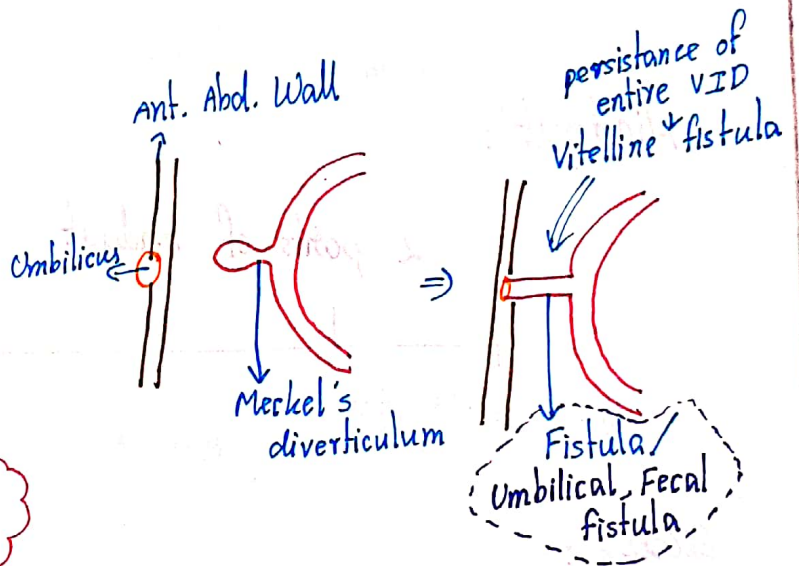 Ant. Abd. Wall
Umbilicus
Meckel's
diverticulum
persistance of
entire VID
Vitelline fistula
Fistula/
Umbilical, Fecal
fistula